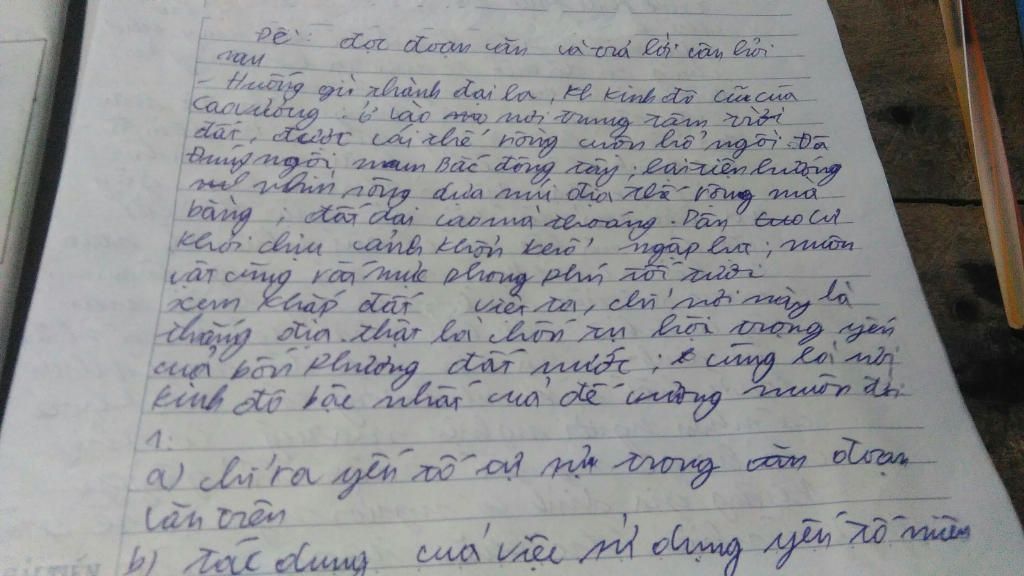 Đề: đọc đoạn văn và trả lời câu hỏi
sau
- Huống gì thành đại la, kinh đô cũ của
Cao Vương: ở vào nơi trung tâm trời
đất; được cái thế rồng cuộn hổ ngồi. Đã
đúng ngôi nam bắc đông tây; lại tiện hướng
nhìn sông dựa núi địa thế rộng mà
bằng; đất đai cao mà thoáng. Dân cư
khỏi chịu cảnh khốn khổ ngập lụt; muôn
vật cũng rất mực phong phú tốt tươi
xem khắp đất việt ta, chỉ nơi này là
thắng địa. thật là chốn tụ hội trọng yếu
của bốn phương đất nước; cũng là nơi
kinh đô bậc nhất của đế vương muôn đời
1:
a) chỉ ra yếu tố tự sự trong đoạn
văn trên
b) tác dụng của việc sử dụng yếu tố miêu